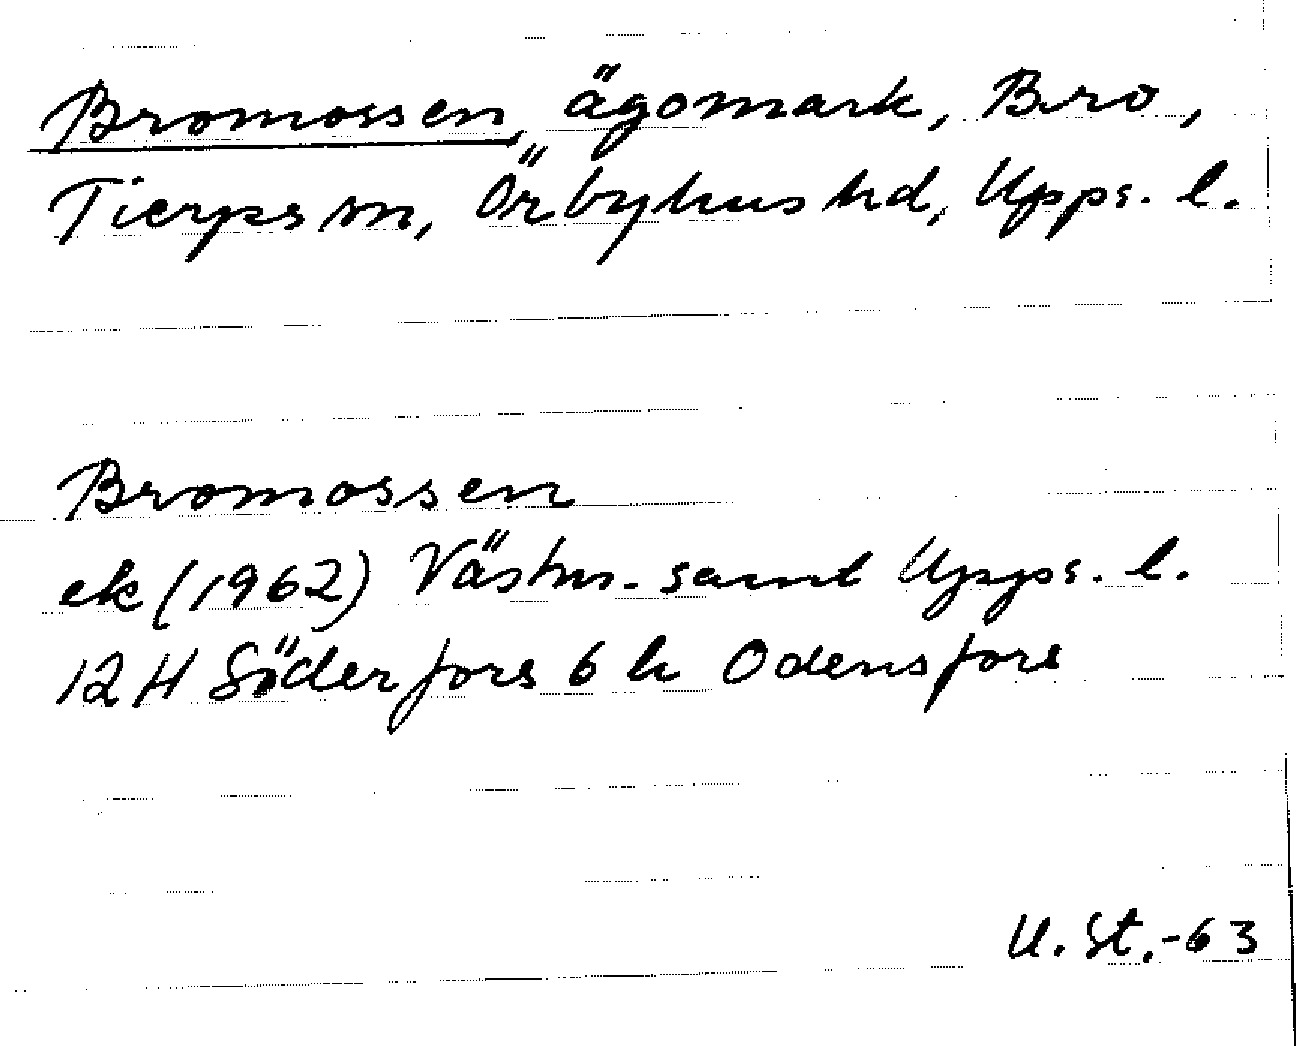 Bromossen, ägomark, Bro,
Tierps sn, Örbyhus hd, Upps. l.
Bromossen
ek (1962) Västm. samt Upps. l.
12 H Söderfors 6 h Odensfors
U. St.-63